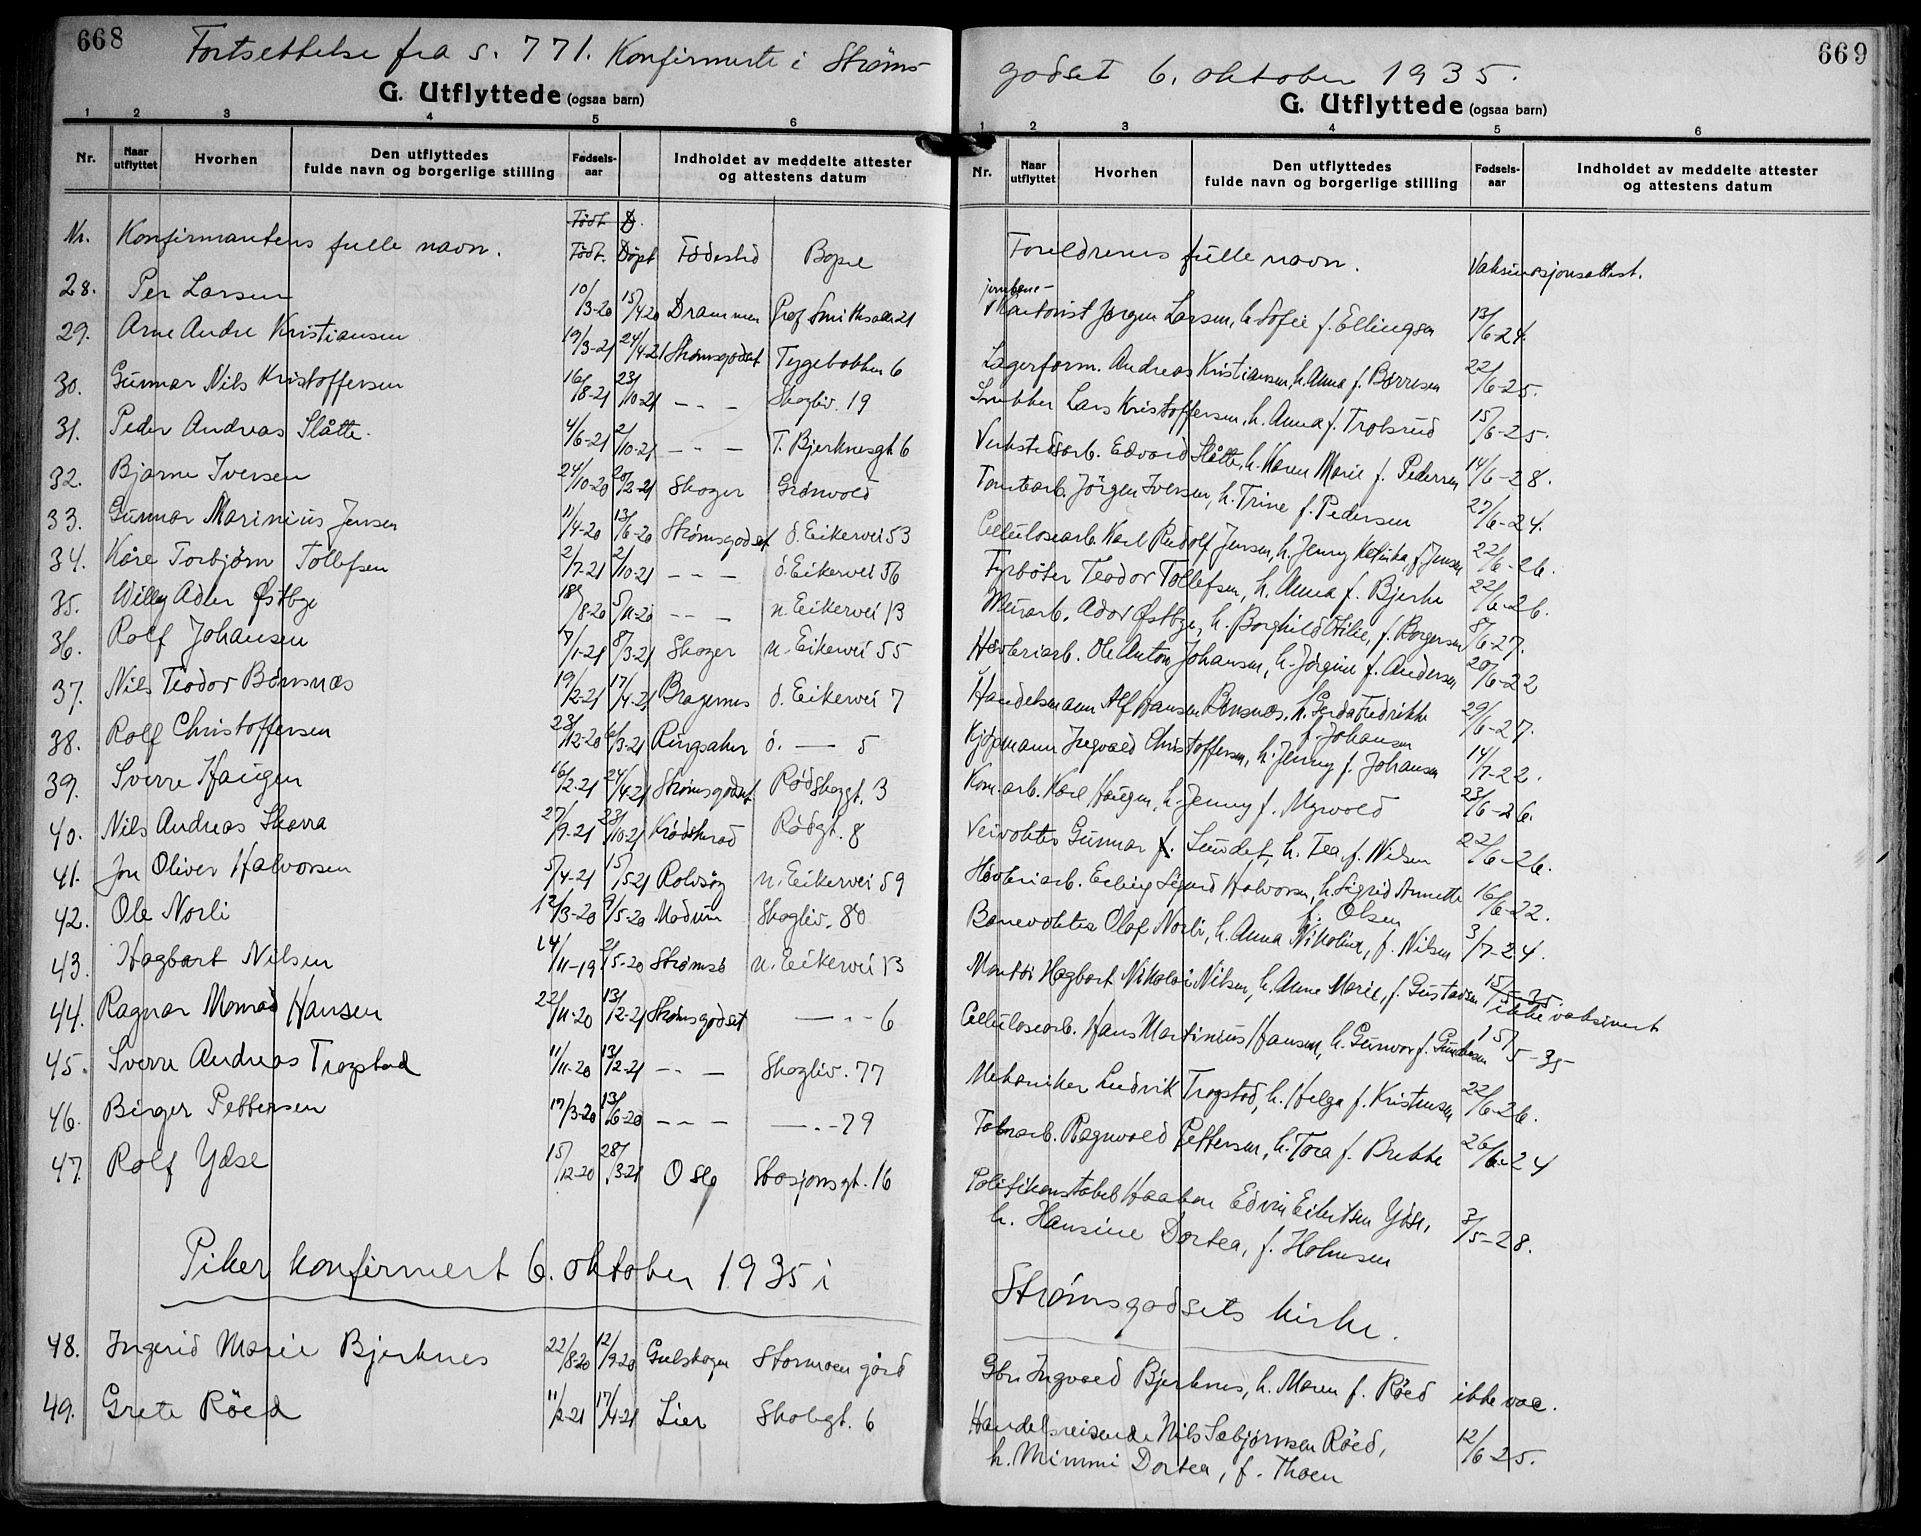 668
Fortsettelse fra s. 771. Konfirmerte i Strøms-
G. Utflyttede (ogsaa barn)
1 2 3 4 5 6
Nr. Naar utflyttet Hvorhen Den utflyttedes fulde navn og borgerlige stilling Fødsels-aar Indholdet av meddelte attester og attestens datum
Født D.
Nr. Konfirmantens fulle navn. Født. Døpt Fødested Bopel
28. Per Larsen 10/3-20 15/4 20 Drammen Prof Smithsalle 21
29. Arne Andre Kristiansen 19/3-21 24/4-21 Strømsgodset Tygebakken 6
30. Gunnar Nils Kristoffersen 16/8-21 23/10-21 - - - Skogliv. 19
31. Peder Andreas Slåtte. 4/6-21 2/10-21 - - - T. Bjerknesgt. 6
32. Bjarne Iversen 24/10-20 20/2-21 Skoger Grønvold
33. Gunnar Marinius Jensen 11/4-20 13/6-20 Strømsgodset ö. Eikervei 53
34. Kåre Torbjørn Tollefsen 2/7-21 2/10-21 - - - ö. Eikervei 56
35. Willy Adler Østbye 18/8-20 5/11-20 - - - n. Eikervei 13
36. Rolf Johansen 17/1-21 8/3-21 Skoger n. Eikervei 55
37. Nils Teodor Bønsnæs 19/2-21 17/4-21 Bragernes ö. Eikervei 7
38. Rolf Christoffersen 23/12-20 6/3-21 Ringsaker ö. — 5
39. Sverre Haugen 16/2-21 24/4-21 Strømsgodset Rødskoggt. 3
40. Nils Andreas Skarra 27/9-21 23/10-21 Krødsherad Rødgt. 8
41. Jon Oliver Halvorsen 5/4-21 15/5-21 Rolvsøy n. Eikervei 59
42. Ole Norli 12/3-20 9/5-20 Modum Skogliv. 80
43. Hagbart Nilsen 14/11-19 2/5-20 Strømsø n. Eikervei 13
44. Ragnar Monrad Hansen 22/11-20 13/2-21 Strømsgodset — - - 6
45. Sverre Andreas Trogstad 11/11-20 13/2-21 - - - Skogliv. 77
46. Birger Pettersen 17/3-20 13/6-20 - - - — - - 79
47. Rolf Ydse 15/12-20 28/3-21 Oslo Stasjonsgt. 16
Piker konfirmert 6. oktober 1935 i
48. Ingerid Marie Bjerknes 22/8-20 12/9-20 Gulskogen Stormoen gård
49. Grete Röed 11/2-21 17/4-21 Lier Skolegt. 6
669
godset 6. oktober 1935.
G. Utflyttede (ogsaa barn)
1 2 3 4 5 6
Nr. Naar utflyttet Hvorhen Den utflyttedes fulde navn og borgerlige stilling Fødsels-aar Indholdet av meddelte attester og attestens datum
Foreldrenes fulle navn. Vaksinasjonsattest.
jernbane-
kontorist Jørgen Larsen, h. Sofie f. Ellingsen 13/6-24.
Lagerform. Andreas Kristiansen, h. Anna f. Børresen 22/6-25.
Snekker Lars Kristoffersen, h. Anna f. Trolsrud 15/6-25.
Verkstedsarb. Edvard Slåtte, h. Karen Marie f. Pedersen 14/6-28.
Tomtearb. Jörgen Iversen, h. Trine f. Pedersen 27/6-24.
Cellulosearb. Karl Rudolf Jensen, h. Jenny f. Jensen 22/6-26.
Fyrbøter Teodor Tollefsen, h. Anna f. Bjerke 22/6-26.
Murarb. Ador Østbye, h. Borghild Otilie, f. Borgersen 8/6-27.
Høvleriarb. Ole Anton Johansen, h. Jörgine f. Andersen 20/6-22
Handelsmann Alf Hansen Bønsnæs, h. Gerda Fredrikke
f. Johansen 29/6-27.
Kjøpmann Ingvald Christoffersen, h. Jenny f. Johansen 14/7-22.
Kom. arb. Karl Haugen, h. Jenny f. Myrvold 23/6-26.
Veivokter Gunnar f. Sundet, h. Tea, f. Nilsen 22/6-26.
Høvleriarb. Erling Sigurd Halvorsen, h. Sigrid Annette
f. Olsen 16/6-22.
Banevokter Olaf Norli, h. Anna Nikoline, f. Nilsen 3/7-24.
Montør Hagbart Nikolai Nilsen, h. Anne Marie, f. Gustavsen 15/5-35 ikke vaksinert
Cellulosearb. Hans Martinius Hansen, h. Gunvor f. Gundersen 15/5-35
Mekaniker Ludvik Trogstad, h. Helga f. Kristensen 22/6-26.
Fabr.arb. Ragnvald Pettersen, h. Tora f. Brekke 26/6-24
Politikonstabel Haakon Edvin Eilertsen Ydse,
h. Hansine Dortea, f. Holmsen 3/5-28.
Strømsgodsets kirke.
Gbr. Ingvald Bjerknes, h. Maren f. Röed ikke vac.
Handelsreisende Nils Sæbjørnsen Röed,
h. Mimmi Dortea, f. Thoen 12/6-25.